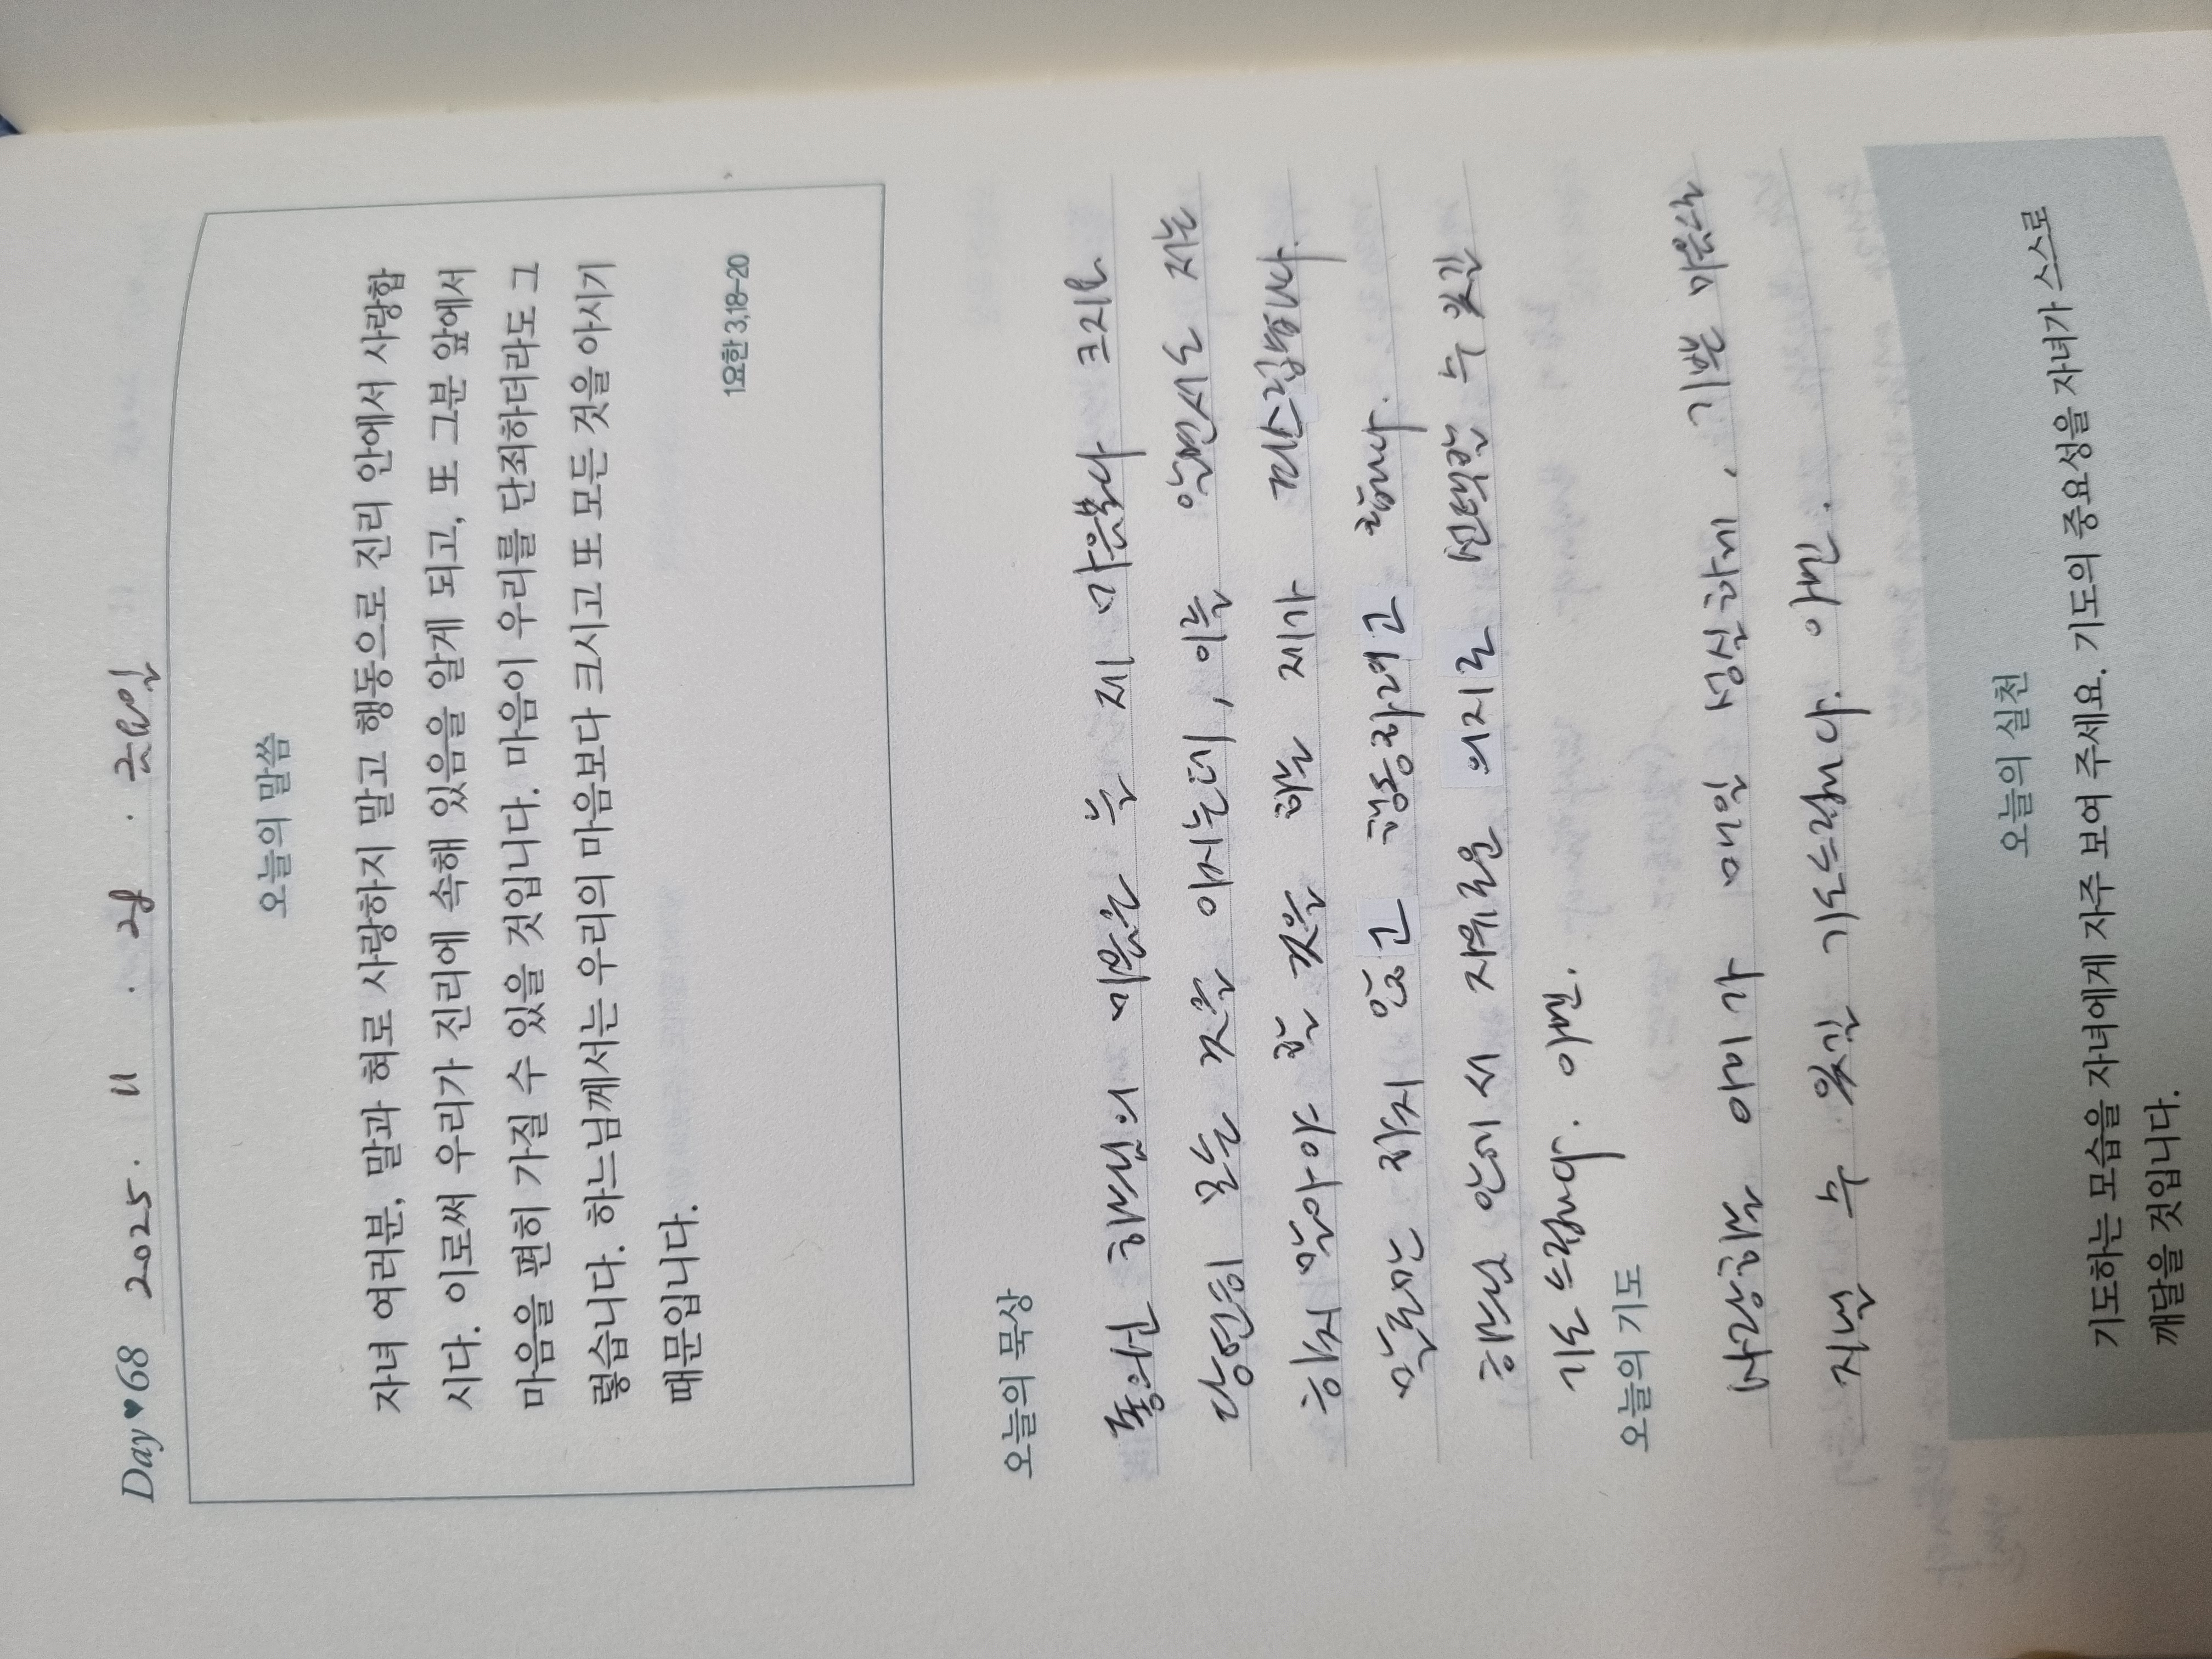 Day ♥ 68 2025. 11 . 28 . 금요일
오늘의 말씀
자녀 여러분, 말과 혀로 사랑하지 말고 행동으로 진리 안에서 사랑합
시다. 이로써 우리가 진리에 속해 있음을 알게 되고, 또 그분 앞에서
마음을 편히 가질 수 있을 것입니다. 마음이 우리를 단죄하더라도 그
렇습니다. 하느님께서는 우리의 마음보다 크시고 또 모든 것을 아시기
때문입니다.
1요한 3,18-20
오늘의 묵상
좋으신 하느님의 마음은 늘 제 마음보다 크지요
당연히 모든 것을 아시는데, 이를 알면서도 저는
하지 않아야 할 것을 하는 제가 꺼스럽습니다.
말로만 하지 않고 행동하려고 합니다.
하느님 안에서 자유로운 의지로 선택할 수 있길
기도드립니다. 아멘.
오늘의 기도
사랑하는 아이가 매일 성실하게, 기쁜 마음으로
지낼 수 있길 기도드립니다. 아멘.
오늘의 실천
기도하는 모습을 자녀에게 자주 보여 주세요. 기도의 중요성을 자녀가 스스로
깨달을 것입니다.